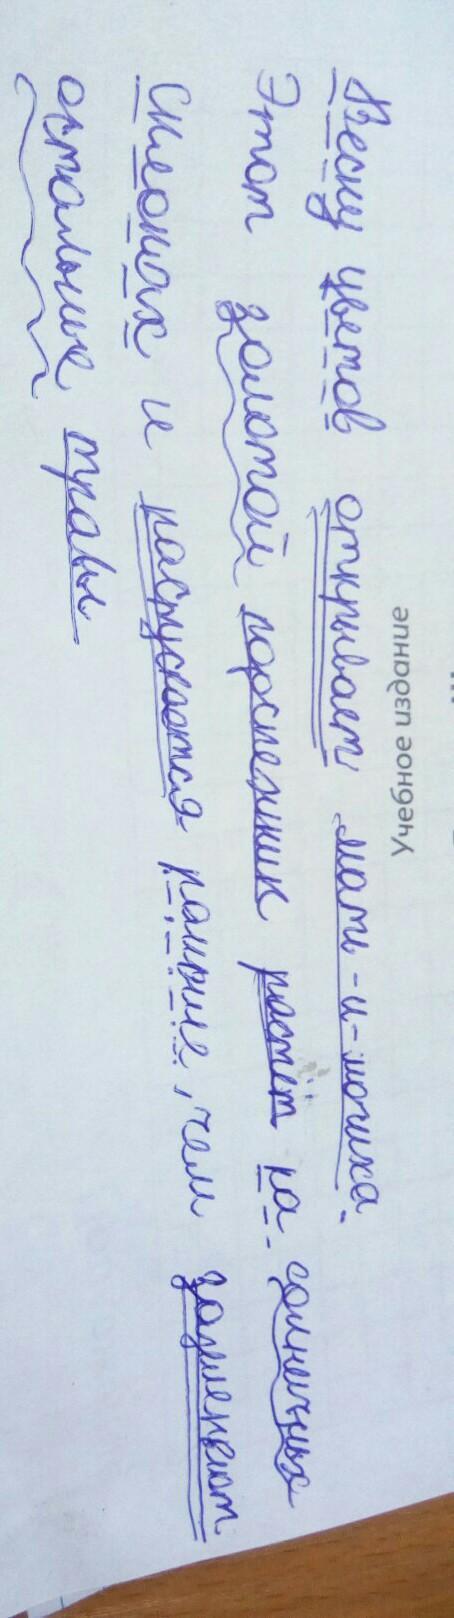 Учебное издание
Весну цветов открывает мать-и-мачиха.
Этот золотой порспежник растет на солнечных
склонах и распускается раньше, чем зазиленеют
остальные травы